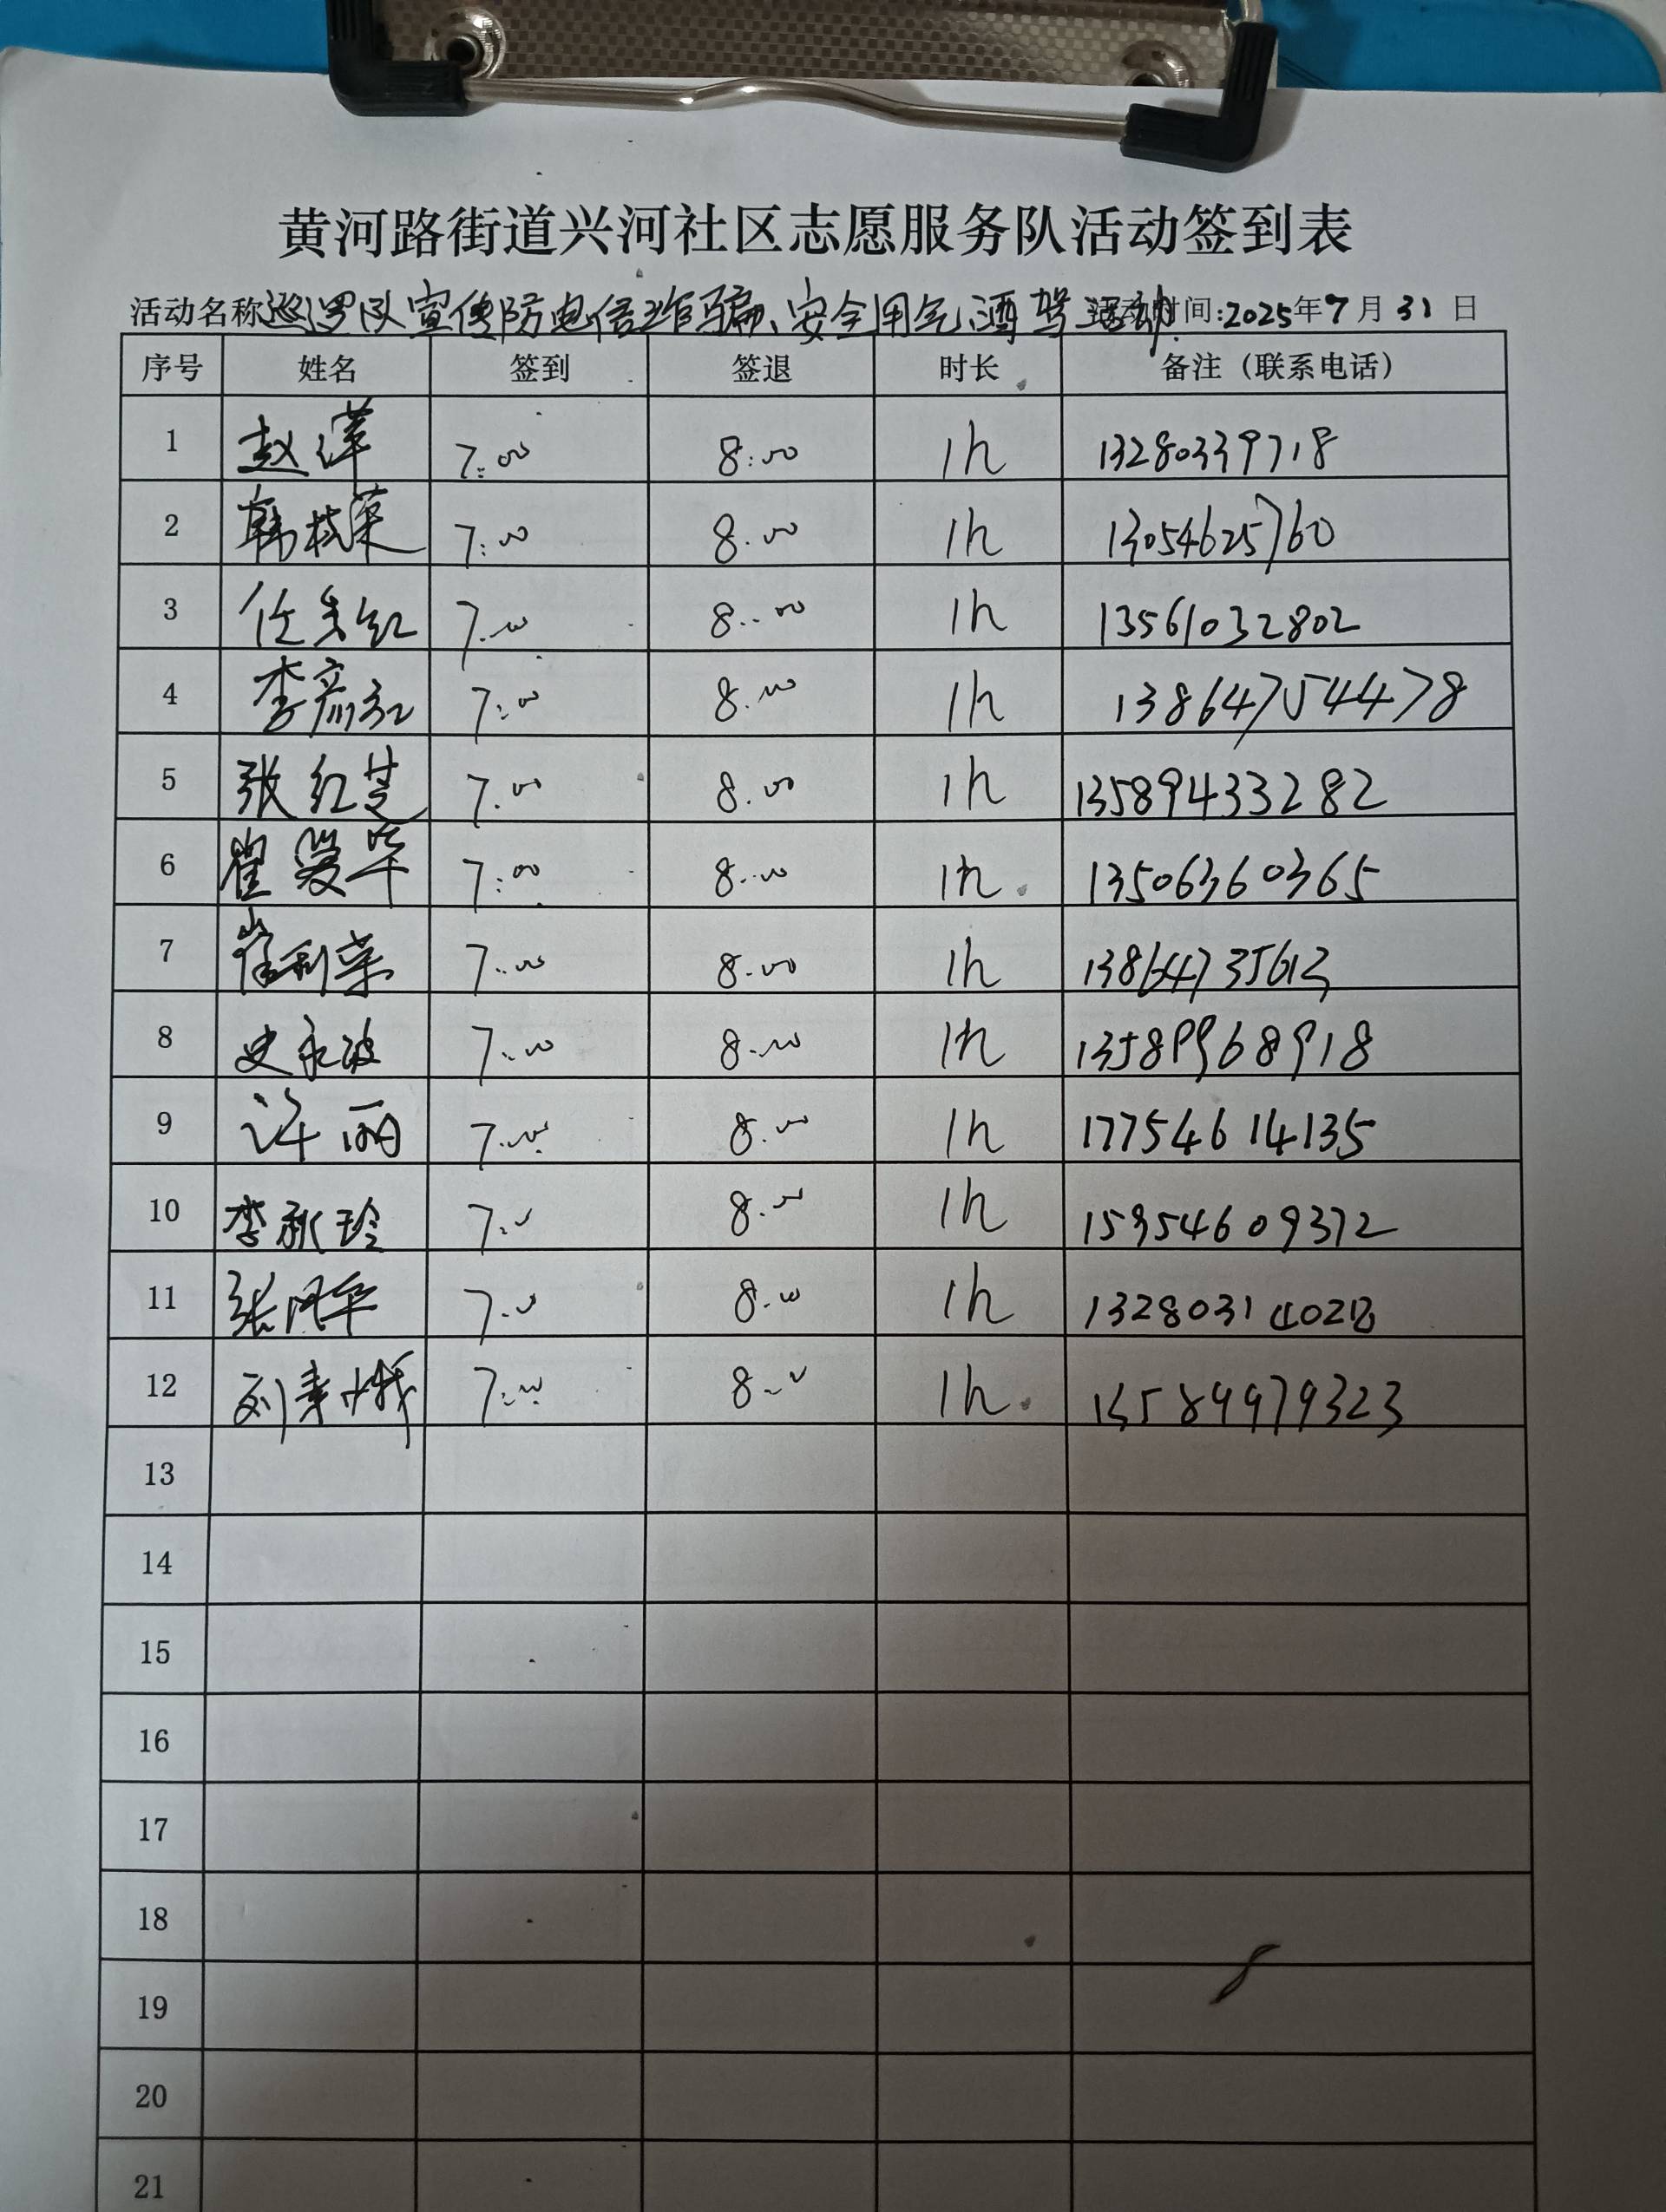 黄河路街道兴河社区志愿服务队活动签到表
活动名称巡逻队宣传防电信诈骗、安全用气、酒驾活动 时间:2025年7月31日
序号 姓名 签到 签退 时长 备注（联系电话）
1 赵萍 7:00 8:00 1h 13280339718
2 韩桂荣 7:00 8:00 1h 13054625760
3 任 红 7:00 8:00 1h 13561032802
4 李彦红 7:00 8:00 1h 138647544478
5 张红芝 7:00 8:00 1h 13589433282
6 崔爱华 7:00 8:00 1h 13506360365
7 崔利荣 7:00 8:00 1h 13864735613
8 史永波 7:00 8:00 1h 13589968918
9 许丽 7:00 8:00 1h 17754614135
10 李秋玲 7:0 8:00 1h 15954609372
11 张凤华 7:0 8:00 1h 1328031402
12 刘 娥 7:00 8:00 1h 13589979323
13
14
15
16
17
18
19
20
21